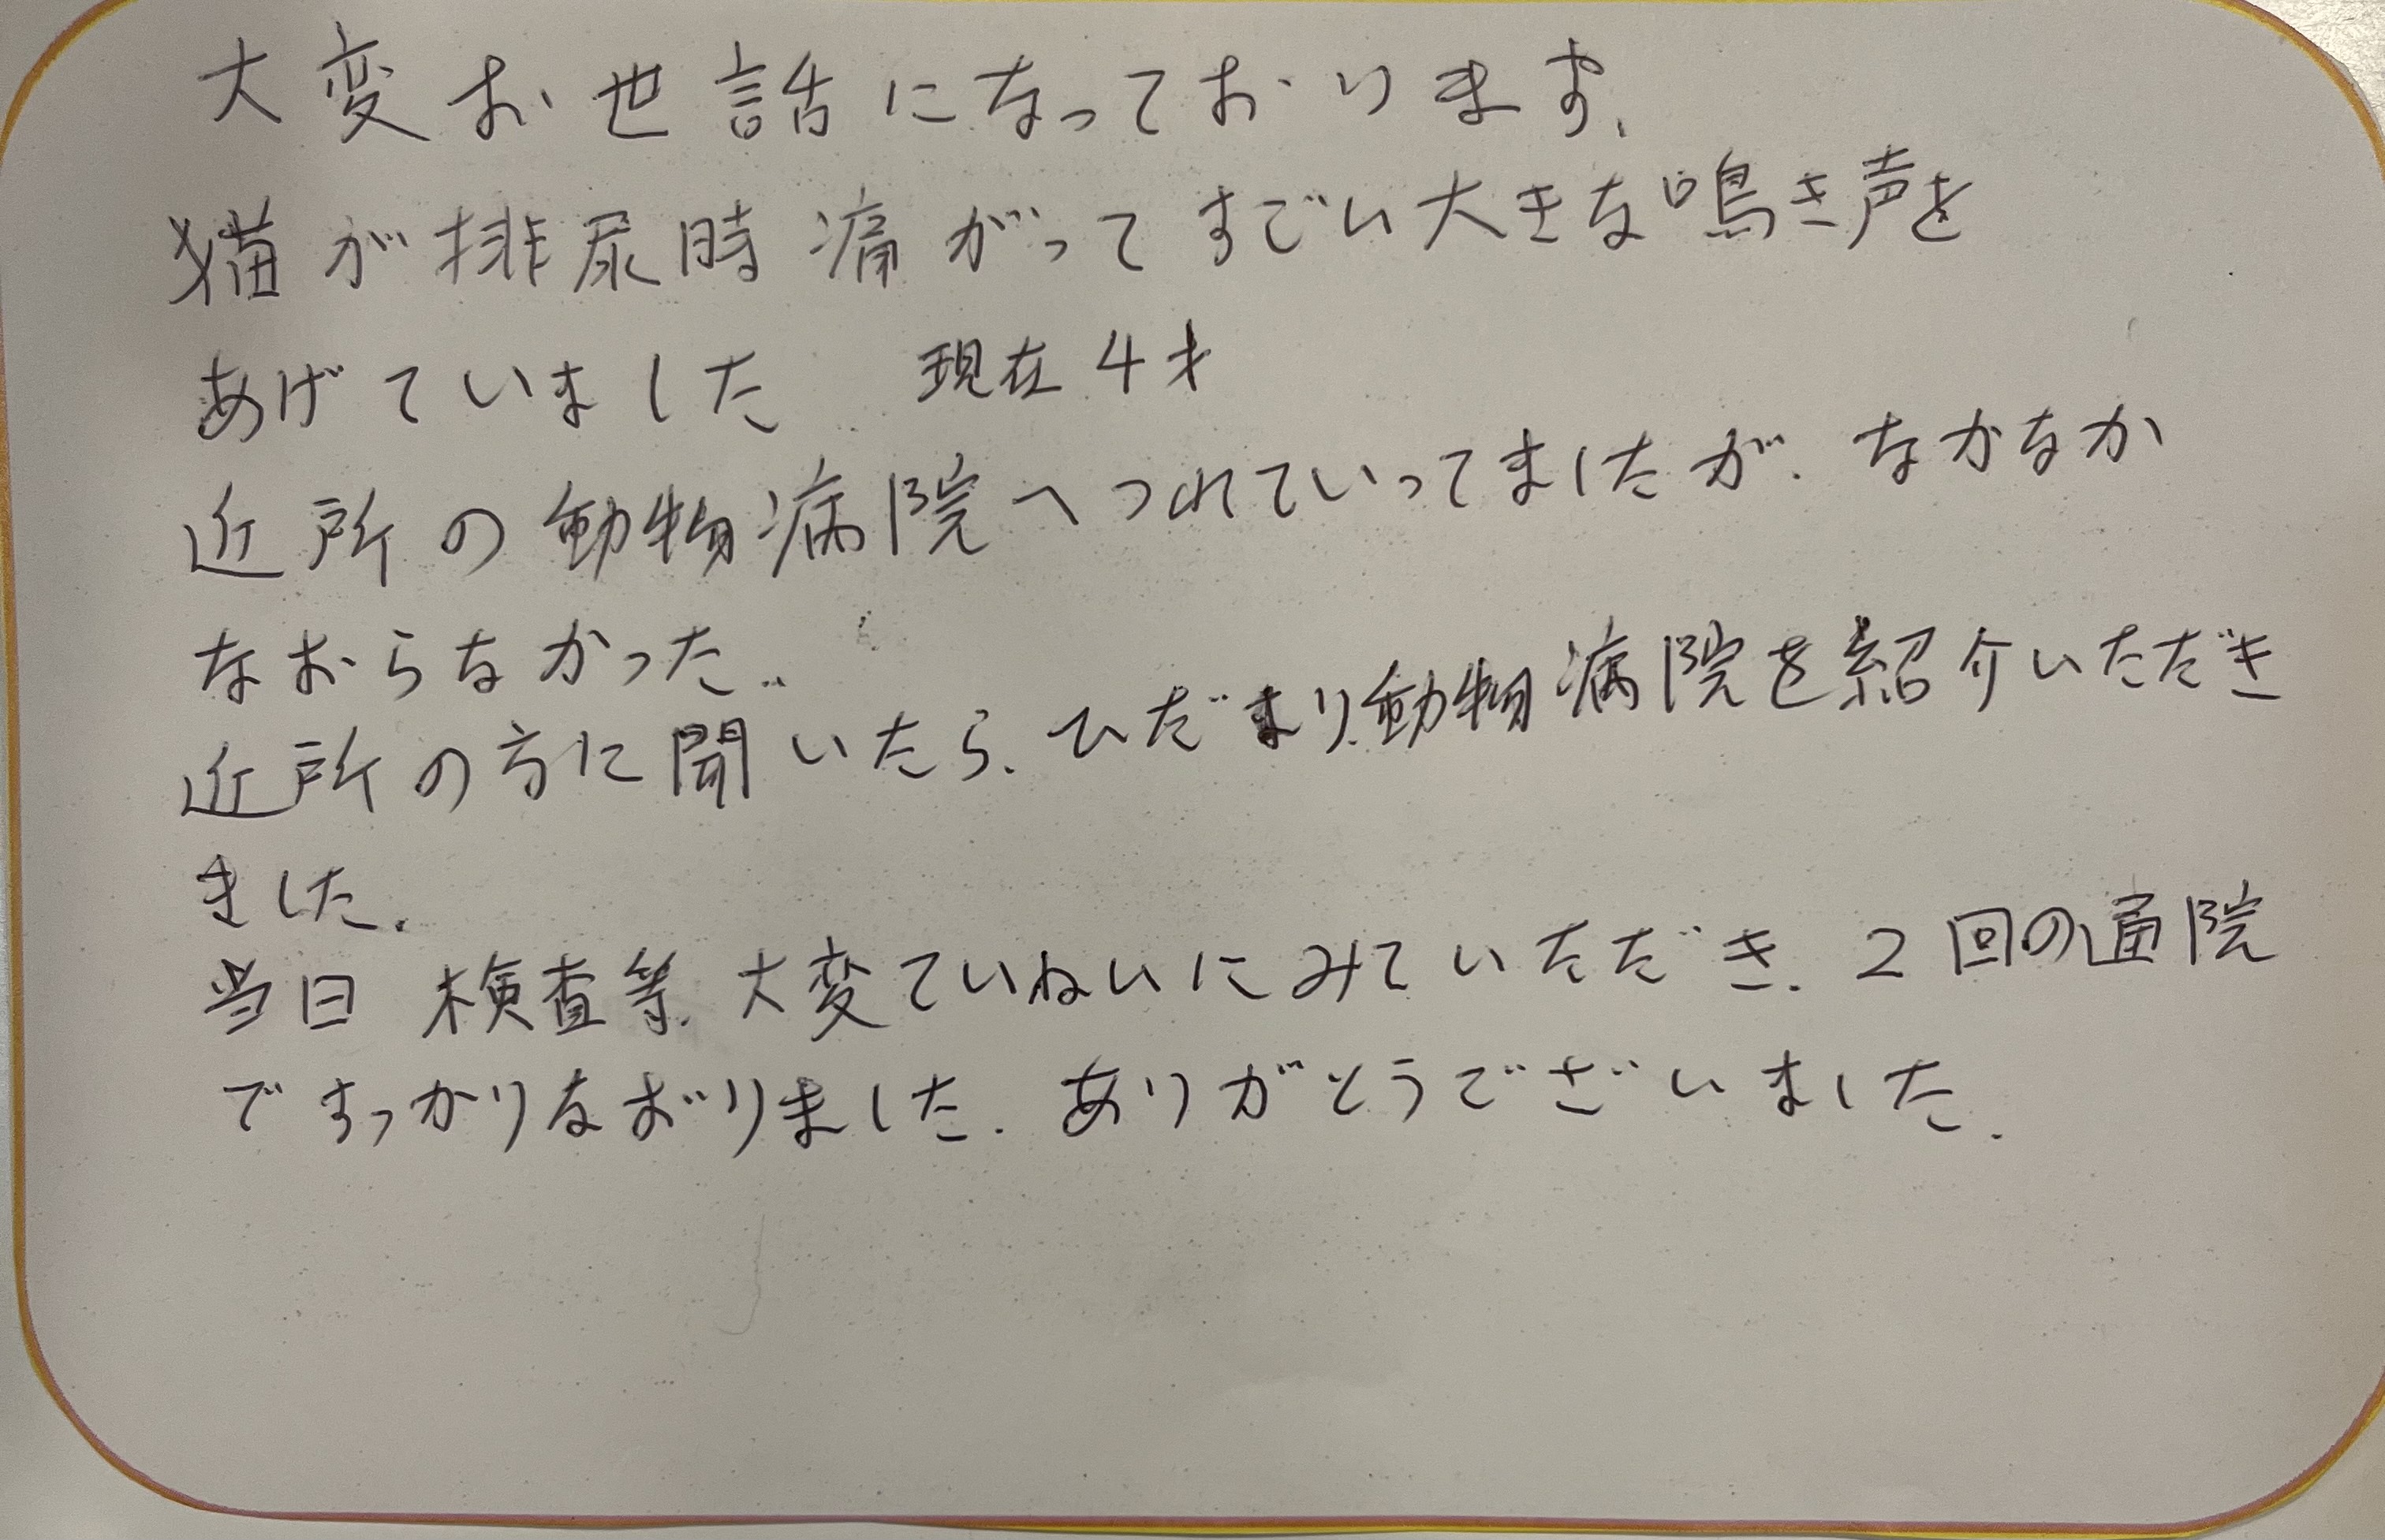 大変お世話になっております、
猫が排尿時痛がってすごい大きな鳴き声を
あげていました 現在4才
近所の動物病院へつれていってましたが、なかなか
なおらなかった。
近所の方に聞いたら、ひだまり動物病院を紹介いただき
ました。
当日 検査等、大変ていねいにみていただき、2回の通院
ですっかりなおりました。ありがとうございました。